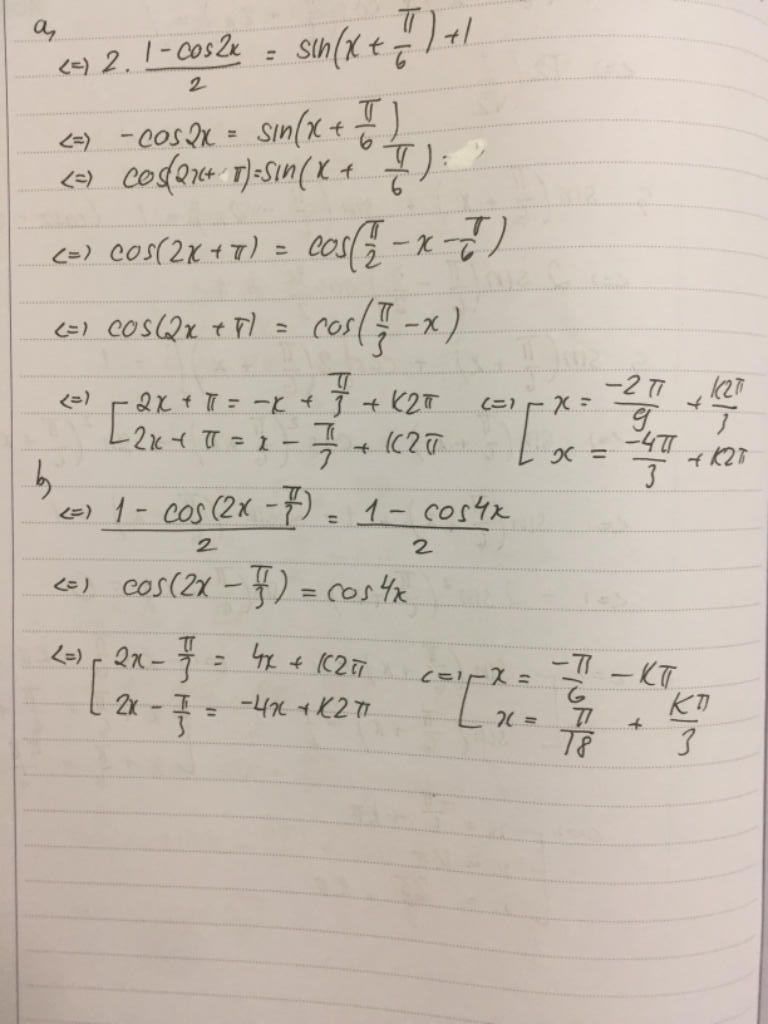 a,
<=> 2. (1 - cos2x)/2 = sin(x + π/6) + 1
<=> -cos2x = sin(x + π/6)
<=> cos(2x + π) = sin(x + π/6)
<=> cos(2x + π) = cos(π/2 - x - π/6)
<=> cos(2x + π) = cos(π/3 - x)
<=> [ 2x + π = -x + π/3 + k2π <=> [ x = -2π/9 + k2π/3
2x + π = x - π/3 + k2π x = -4π/3 + k2π
b,
<=> (1 - cos(2x - π/3))/2 = (1 - cos4x)/2
<=> cos(2x - π/3) = cos4x
<=> [ 2x - π/3 = 4x + k2π <=> [ x = -π/6 - kπ
2x - π/3 = -4x + k2π x = π/18 + kπ/3